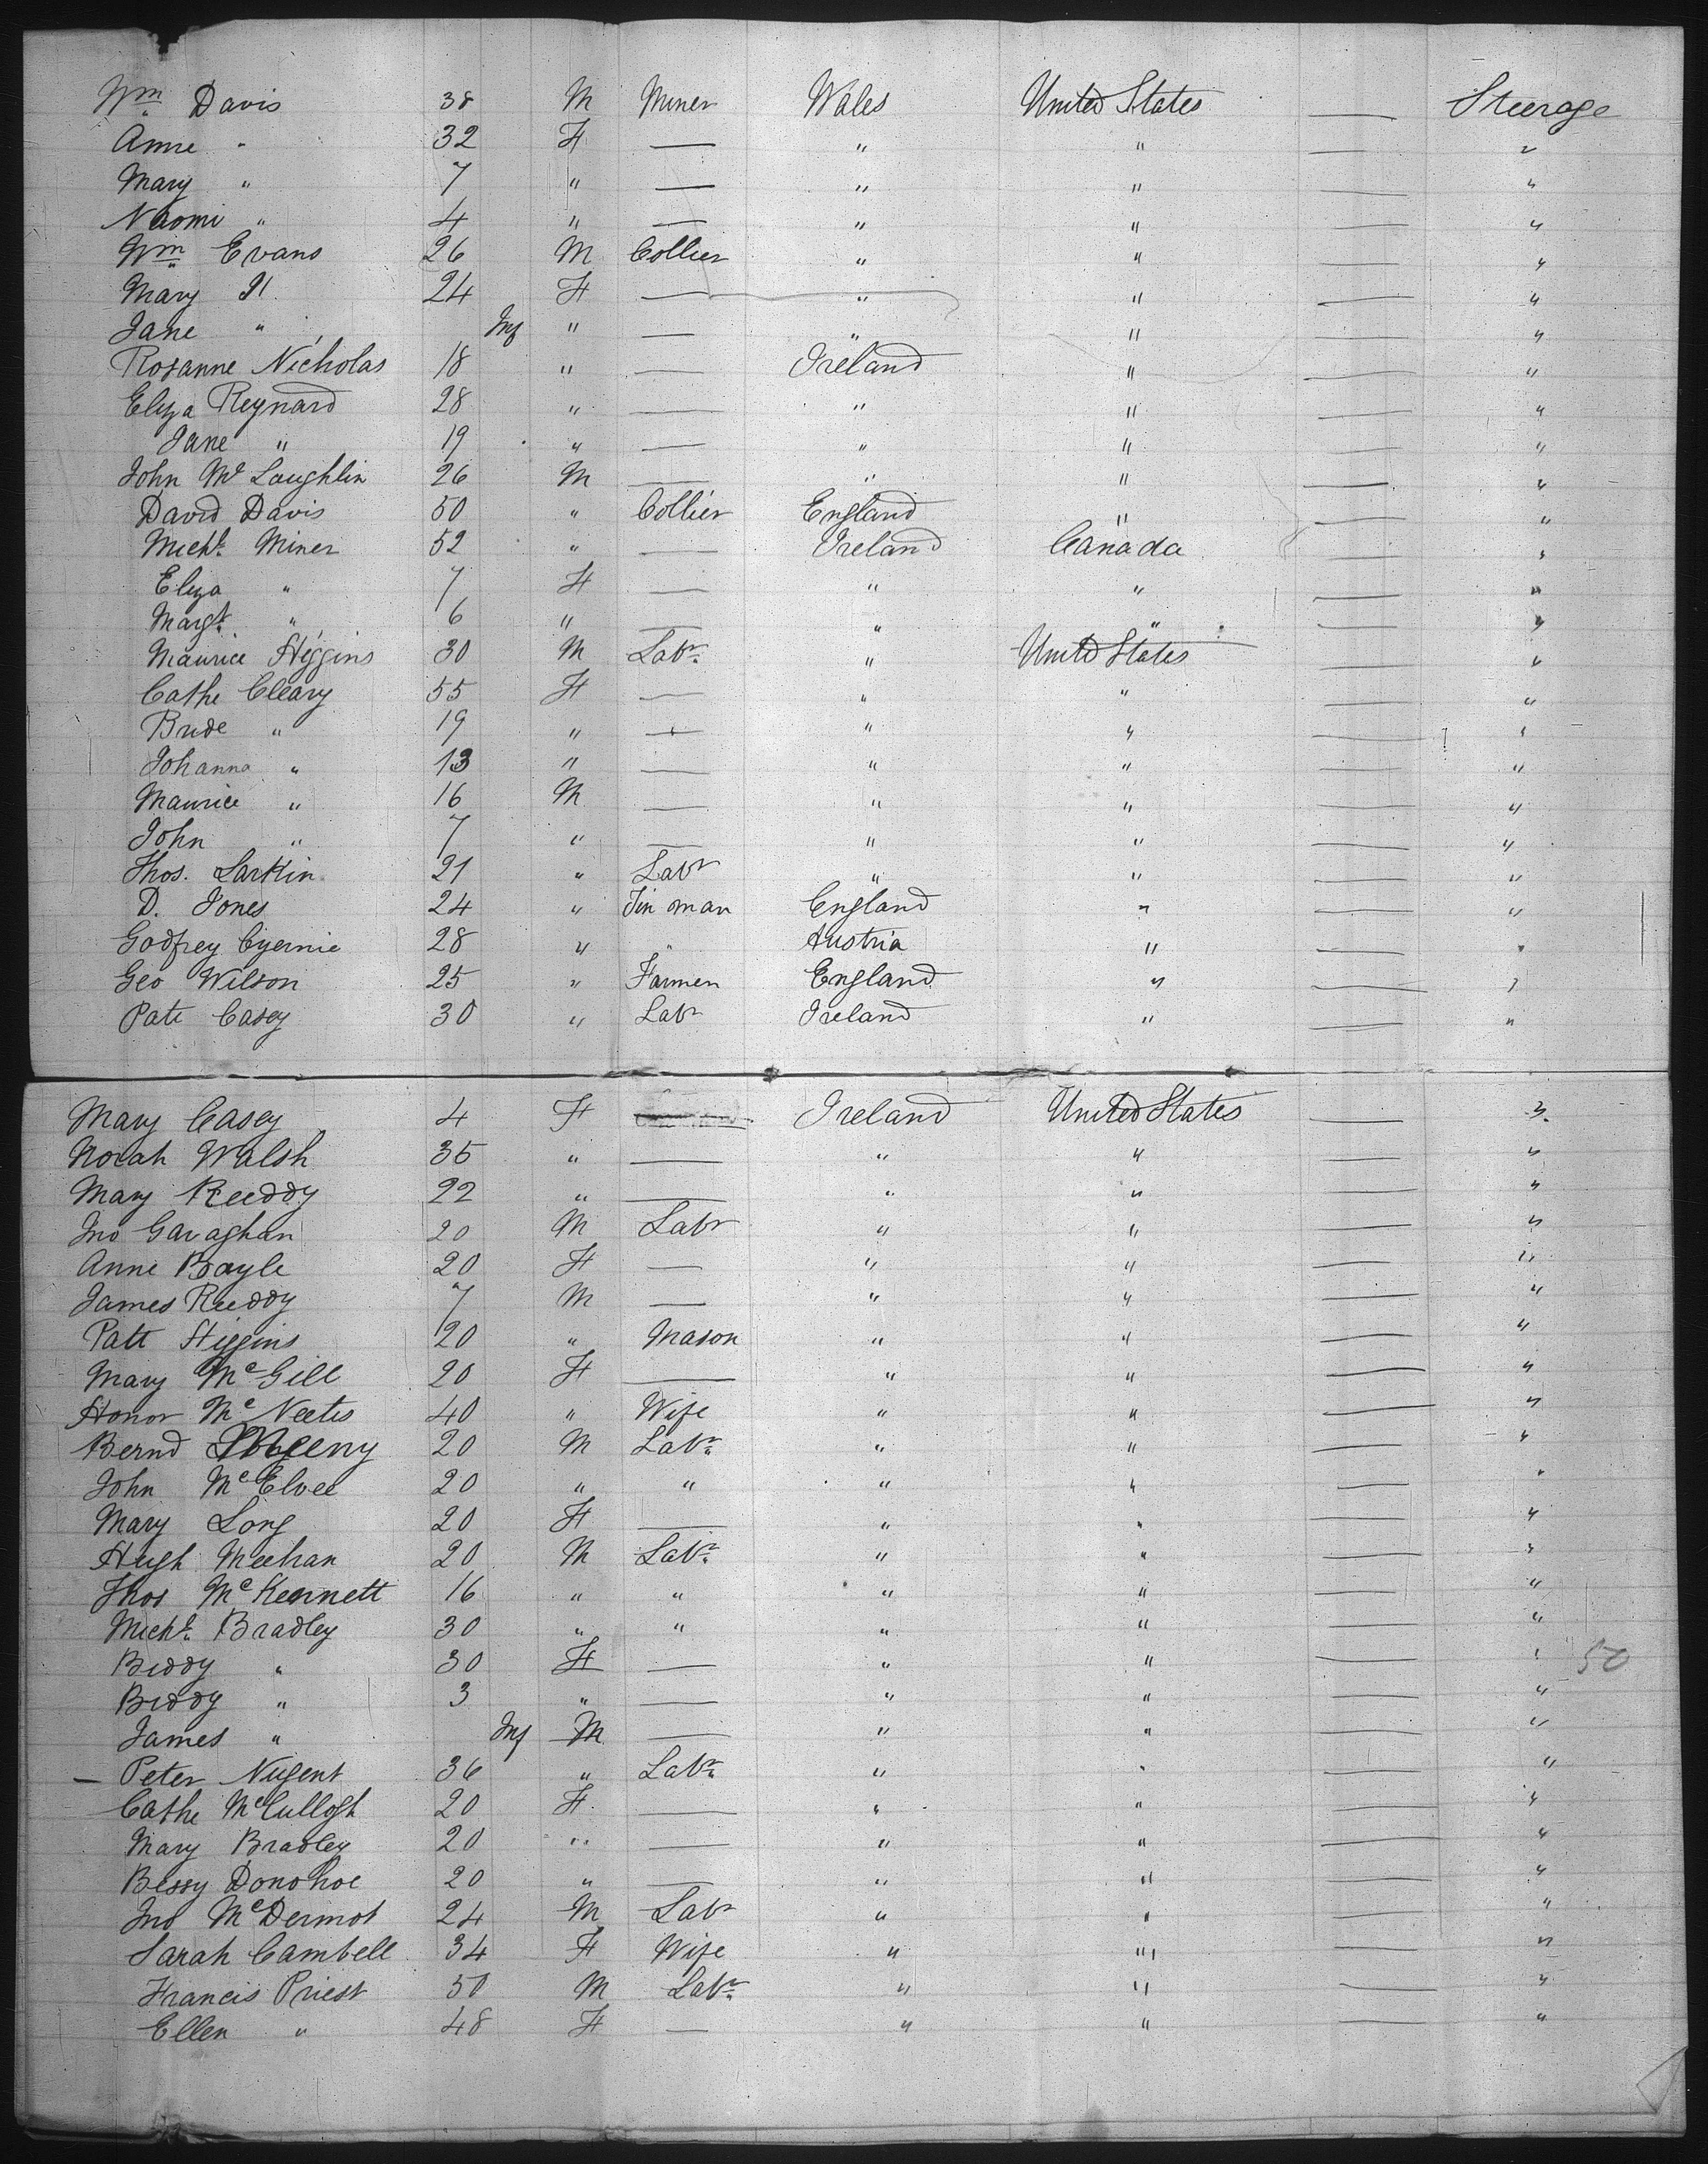 Wm Davis 38 M Miner Wales United States — Steerage
Anne " 32 F — " " — "
Mary " 7 " — " " — "
Naomi " 4 " — " " — "
Wm Evans 26 M Collier " " — "
Mary " 24 F — " " — "
Jane " Inf " — " " — "
Rosanne Nicholas 18 " — Ireland " — "
Eliza Reynard 28 " — " " — "
Jane " 19 " — " " — "
John Mc Loughlin 26 M — " " — "
David Davis 50 " Collier England " — "
Michl. Miner 52 " — Ireland Canada — "
Eliza " 7 F — " " — "
Margt. " 6 " — " " — "
Maurice Higgins 30 M Labr. " United States — "
Cathe Cleary 55 F — " " — "
Bride " 19 " — " " — "
Johanna " 13 " — " " — "
Maurice " 16 M — " " — "
John " 7 " — " " — "
Thos. Larkin 21 " Labr " " — "
D. Jones 24 " Tin man England " — "
Godfrey 28 " " Austria " — "
Geo Wilson 25 " Farmer England " — "
Patt Casey 30 " Labr Ireland " — "
Mary Casey 4 F Ireland United States — "
Norah Walsh 35 " — " " — "
Mary Reeddy 22 " — " " — "
Jno Garaghan 20 M Labr " " — "
Anne Boyle 20 F — " " — "
James Reeddy 7 M — " " — "
Patt Higgins 20 " Mason " " — "
Mary McGill 20 F — " " — "
Honor Mc Neetis 40 " Wife " " — "
Bernd 20 M Labr. " " — "
John McElvee 20 " " " " — "
Mary Long 20 F — " " — "
Hugh Meehan 20 M Labr. " " — "
Thos McKennett 16 " " " " — "
Michl. Bradley 30 " " " " — "
Biddy " 30 F — " " — " 50
Biddy " 3 " — " " — "
James " Inf M — " " — "
— Peter Nugent 36 " Labr. " " — "
Cathe McCullogh 20 F — " " — "
Mary Bradley 20 " — " " — "
Bessy Donohoe 20 " — " " — "
Jno McDermot 24 M Labr " " — "
Sarah Cambell 34 F Wife " " — "
Francis Priest 50 M Labr. " " — "
Ellen " 48 F — " " — "